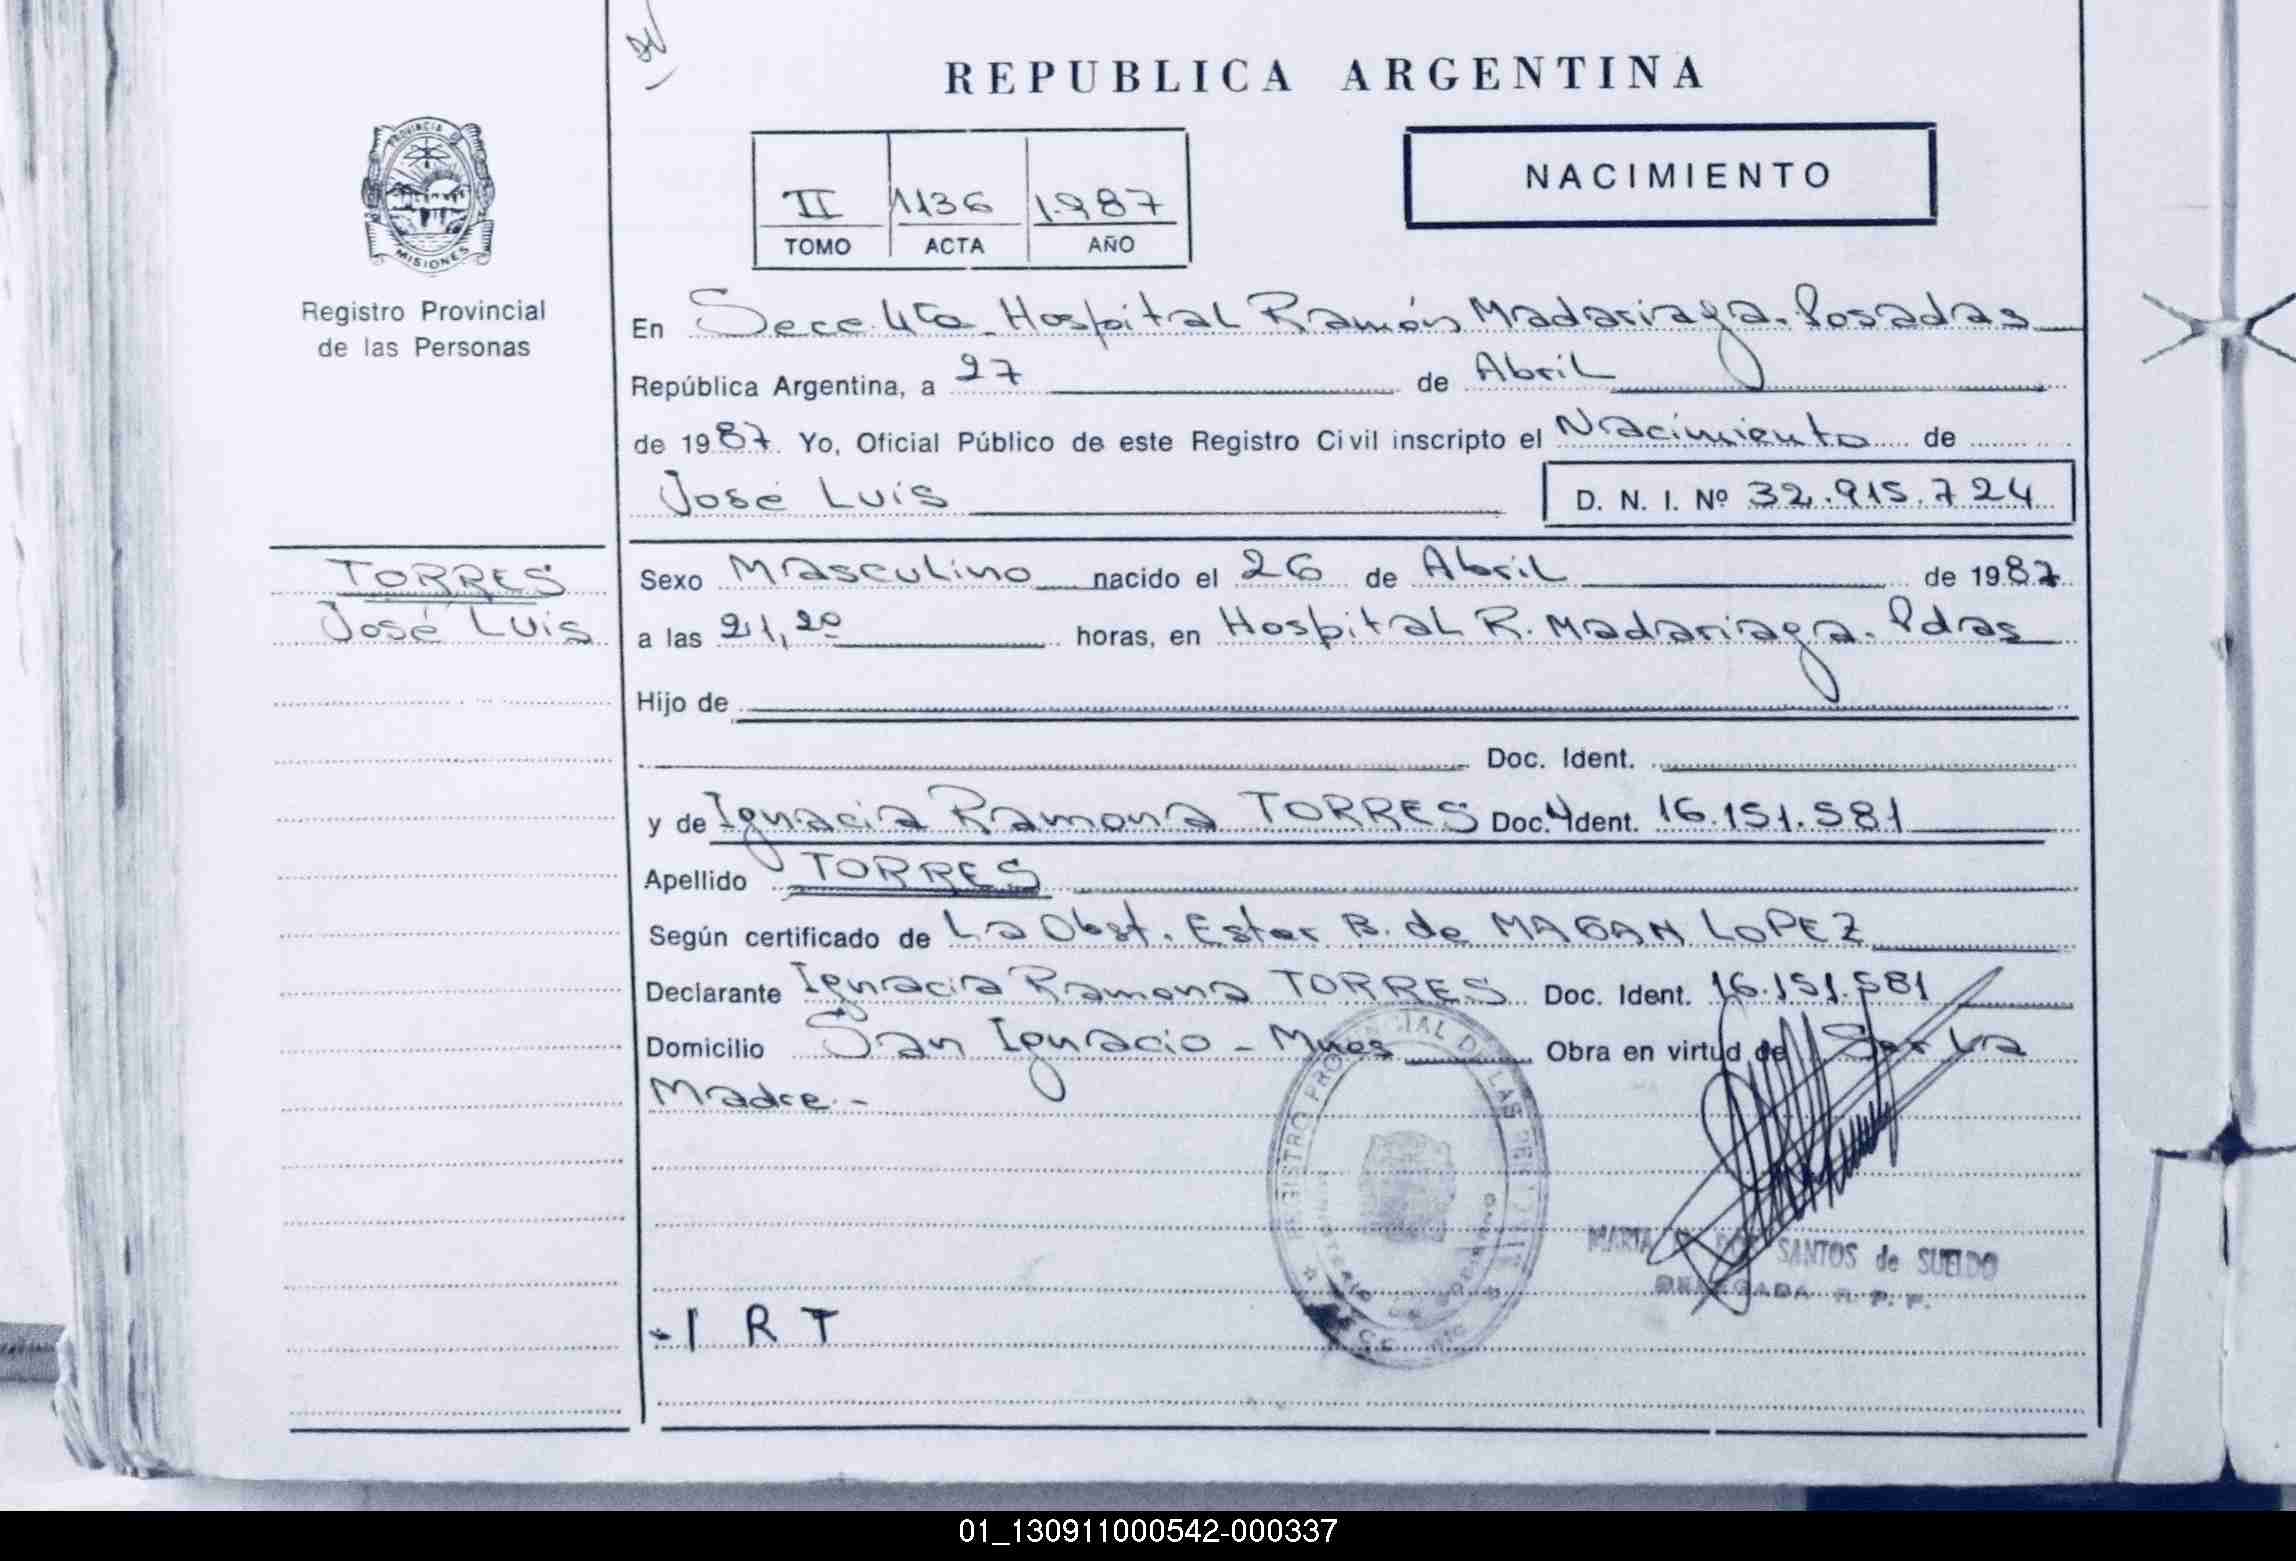 REPUBLICA ARGENTINA
PROVINCIA DE
MISIONES
Registro Provincial
de las Personas
NACIMIENTO
II 1136 1.987
TOMO ACTA AÑO
En Secc. 4ta. Hospital Ramón Madariaga. Posadas
República Argentina, a 27 de Abril
de 1987. Yo, Oficial Público de este Registro Civil inscripto el Nacimiento de
José Luis D. N. I. Nº 32.915.724
TORRES
José Luis
Sexo Masculino nacido el 26 de Abril de 1987
a las 21,20 horas, en Hospital R. Madariaga. Pdas
Hijo de
Doc. Ident.
y de Ignacia Ramona TORRES Doc. Ident. 16.151.581
Apellido TORRES
Según certificado de La Obst. Ester B. de MAGAN LOPEZ
Declarante Ignacia Ramona TORRES Doc. Ident. 16.151.581
Domicilio San Ignacio - Mnes Obra en virtud de Ser La
Madre.-
REGISTRO PROVINCIAL DE LAS PERSONAS
MINISTERIO DE GOBIERNO
MARTA SANTOS de SUELDO
DELEGADA R. P. P.
I R T
01_130911000542-000337